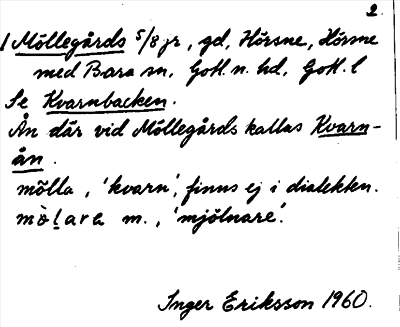 2.
1 Möllegårds 5/8 jr, gd, Hörsne, Hörsne
med Bara sn, Gotl. n. hd, Gotl. l
Se Kvarnbacken.
Ån där vid Möllegårds kallas Kvarn-
ån.
mölla, 'kvarn', finns ej i dialekten.
mò̀l̲ara m., 'mjölnare'.
Inger Eriksson 1960.